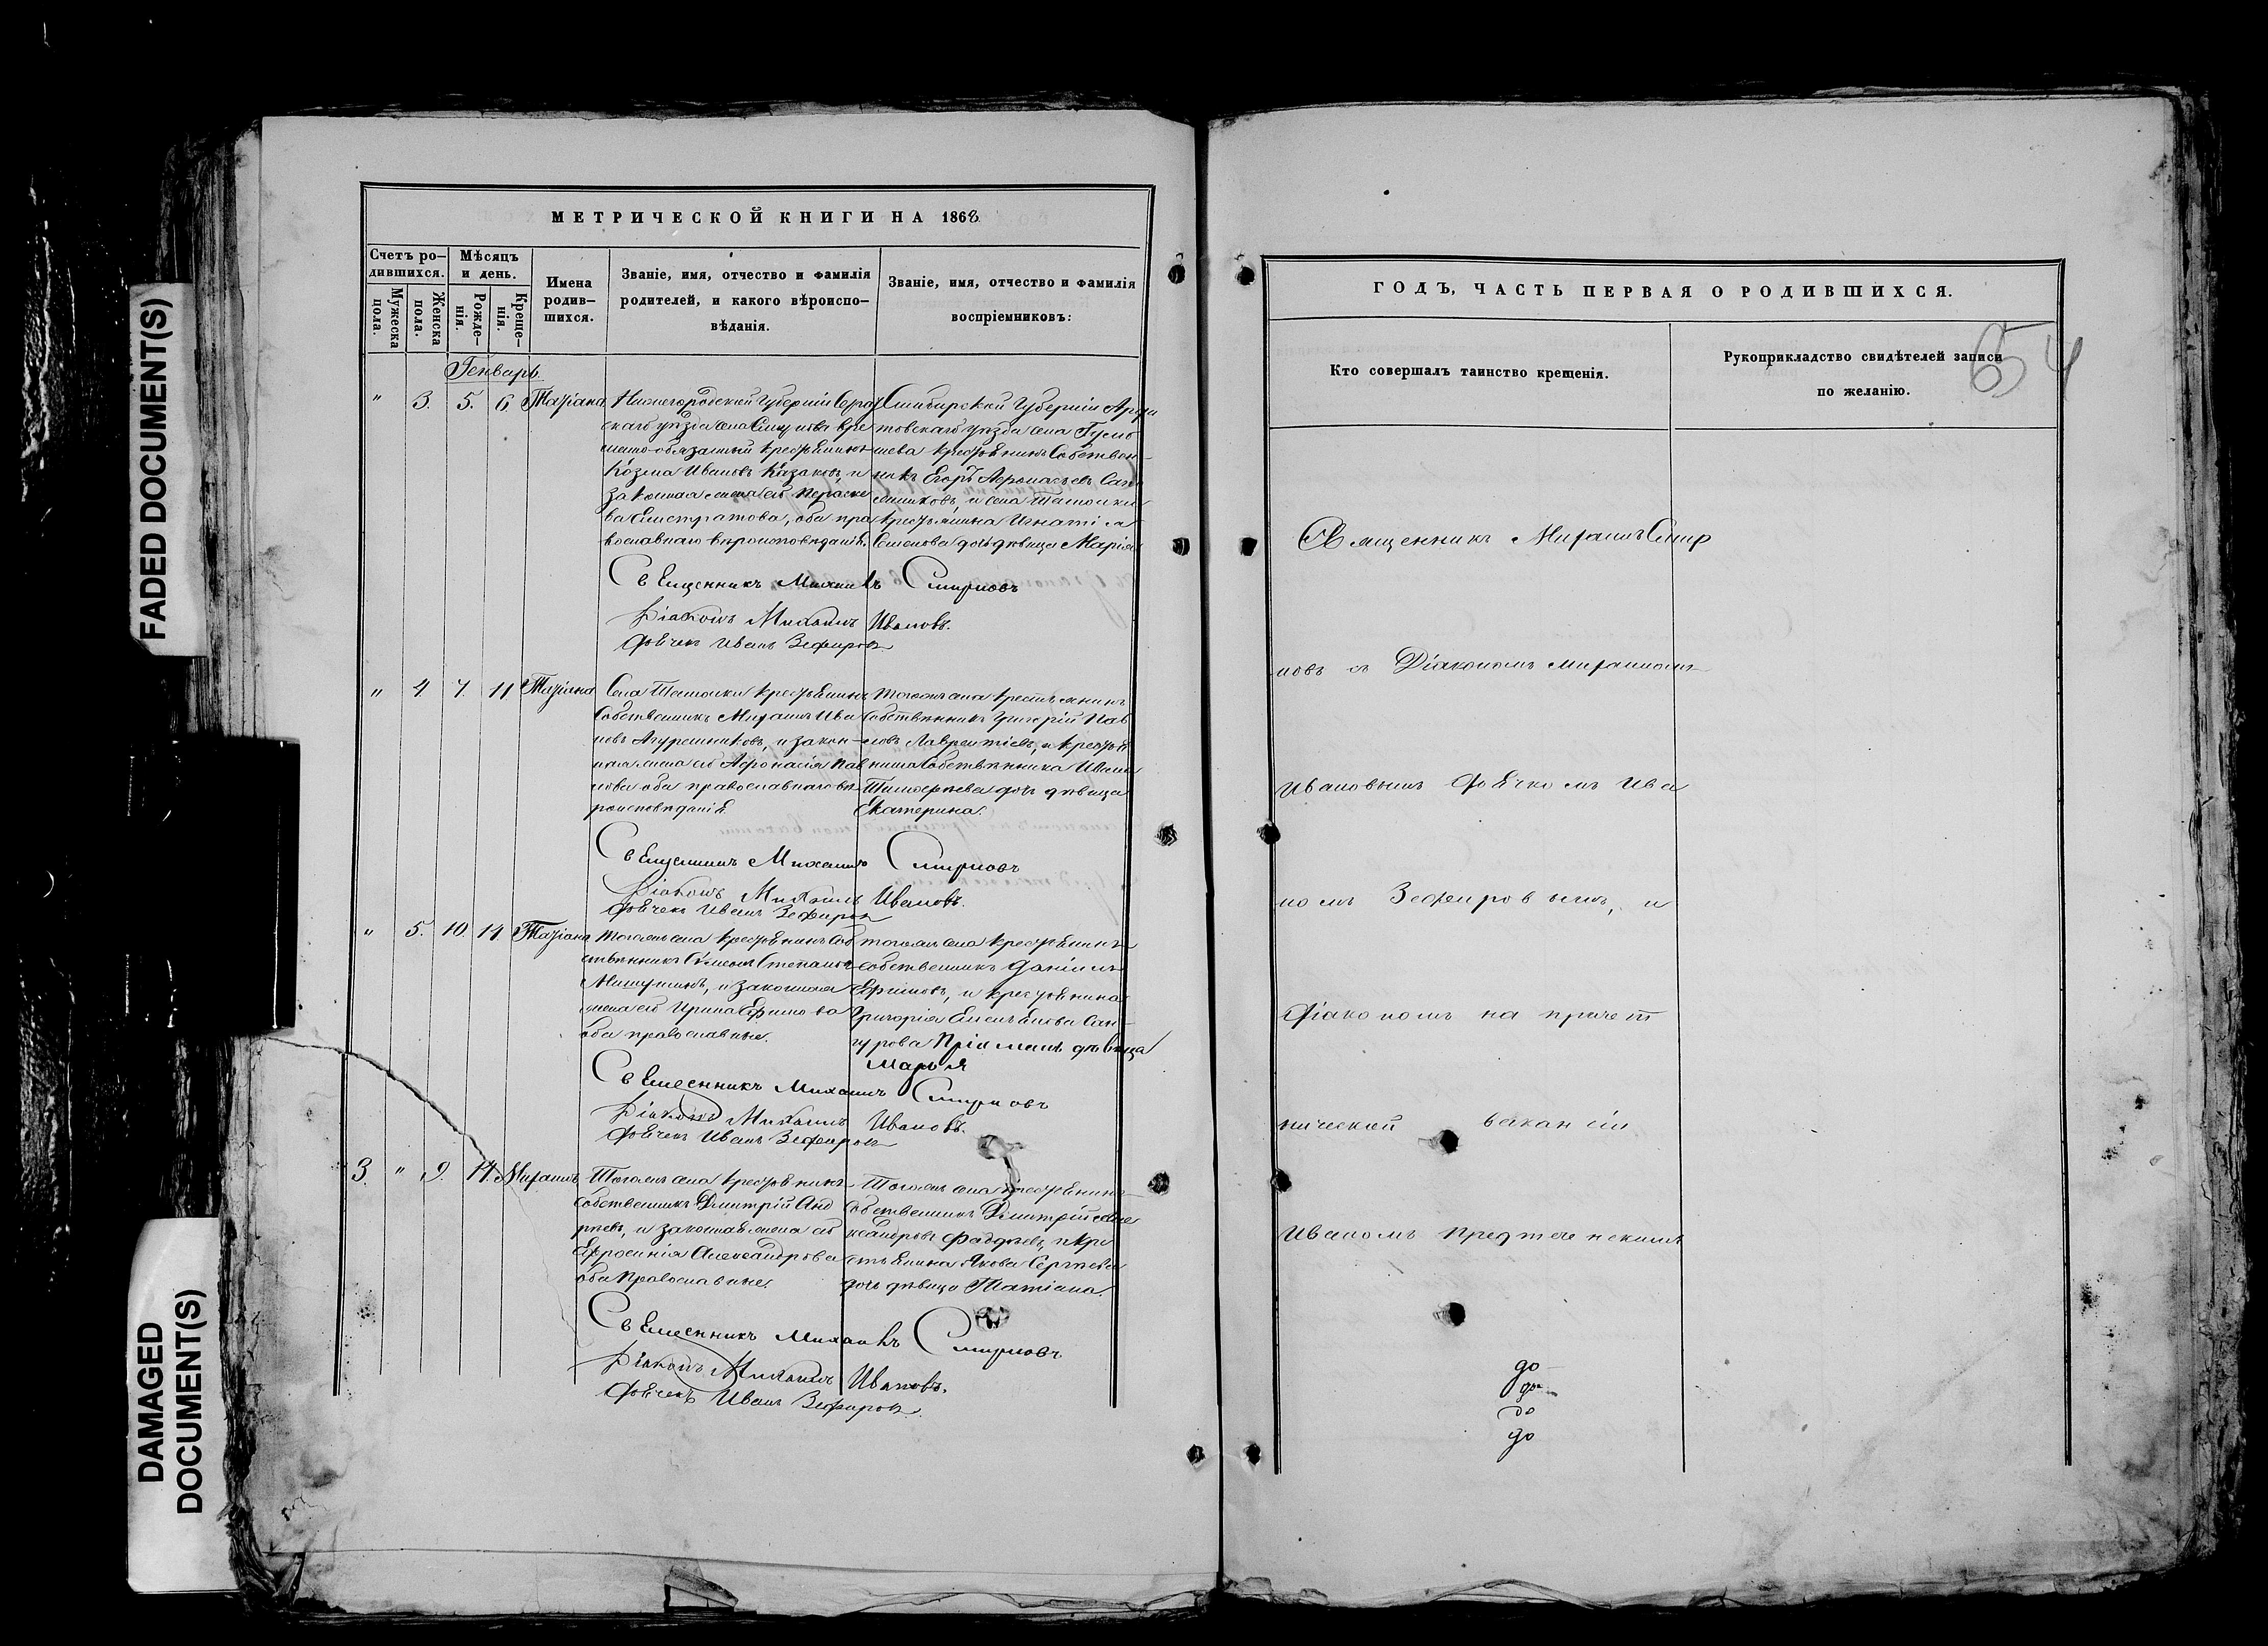 FADED DOCUMENT(S)
DAMAGED
DOCUMENT(S)
МЕТРИЧЕСКОЙ КНИГИ НА 1868
Счетъ ро-
дившихся.
Мужеска
пола.
Женска
пола.
Мѣсяцъ
и день.
Рожде-
нія.
Креще-
нія.
Имена
родив-
шихся.
Званіе, имя, отчество и фамилія
родителей, и какого вѣроиспо-
вѣданія.
Званіе, имя, отчество и фамилія
воспріемниковъ:
Генварь.
" 3. 5. 6 Татіана
Нижегородской Губерніи Серга
скаго уѣзда села вре
менно-обязанный крестьянинъ
Козма Ивановъ Казаковъ, и
законная жена его Параске
ва Елистратова, оба пра
вославнаго вѣроисповѣданія.
Симбирской Губерніи Арда
товскаго уѣзда села
крестьянинъ Собствен-
никъ Егоръ Афонасьевъ
и села
крестьянина Игнатія
Семенова дочь дѣвица Марія
Священникъ Михаилъ Смирновъ
Діаконъ Михаилъ Ивановъ.
Дьячекъ Иванъ Зефировъ
" 4 7. 11. Татіана
Села крестьянинъ
Собственникъ Михаилъ Ива
новъ и закон-
ная жена его Афонасія Пав
лова оба православнаго вѣ
роисповѣданія.
Тогожъ села крестьянинъ
Собственникъ Григорій Пав
ловъ Лаврентіевъ, и крестья
нина Собственника Ивана
Тимофѣева дочь дѣвица
Екатерина.
Священникъ Михаилъ Смирновъ
Діаконъ Михаилъ Ивановъ.
Дьячекъ Иванъ Зефировъ
" 5. 10. 14. Татіана
Тогожъ села крестьянинъ Соб
ственникъ Симеонъ Степановъ
и законная
жена его Ирина Ефимова
оба православные.
тогожъ села крестьянинъ
собственникъ Даніилъ
Ефимовъ, и крестьянина
Григорія
дѣвица
Марья
Священникъ Михаилъ Смирновъ
Діаконъ Михаилъ Ивановъ.
Дьячекъ Иванъ Зефировъ
3. " 9. 14. Михаилъ
Тогожъ села крестьянинъ
Собственникъ Дмитрій Анд
рѣевъ, и законная жена его
Ефросинія Александрова
оба Православные.
Тогожъ села крестьянинъ
Собственникъ Дмитрій Алек
сандровъ Фаддѣевъ, и кре
стьянина Якова Сергѣева
дочь дѣвица Татіана.
Священникъ Михаилъ Смирновъ
Діаконъ Михаилъ Ивановъ.
Дьячекъ Иванъ Зефировъ.
ГОДЪ, ЧАСТЬ ПЕРВАЯ О РОДИВШИХСЯ.
Кто совершалъ таинство крещенія.
Рукоприкладство свидѣтелей записи
по желанію.
54
Священникъ Михаилъ Смир
новъ съ Діакономъ Михаиломъ
Ивановымъ Дьячкомъ Ива
номъ Зефировымъ, и
Діакономъ на причет
нической ваканціи
Иваномъ Предтеченскимъ
до
до
до
до